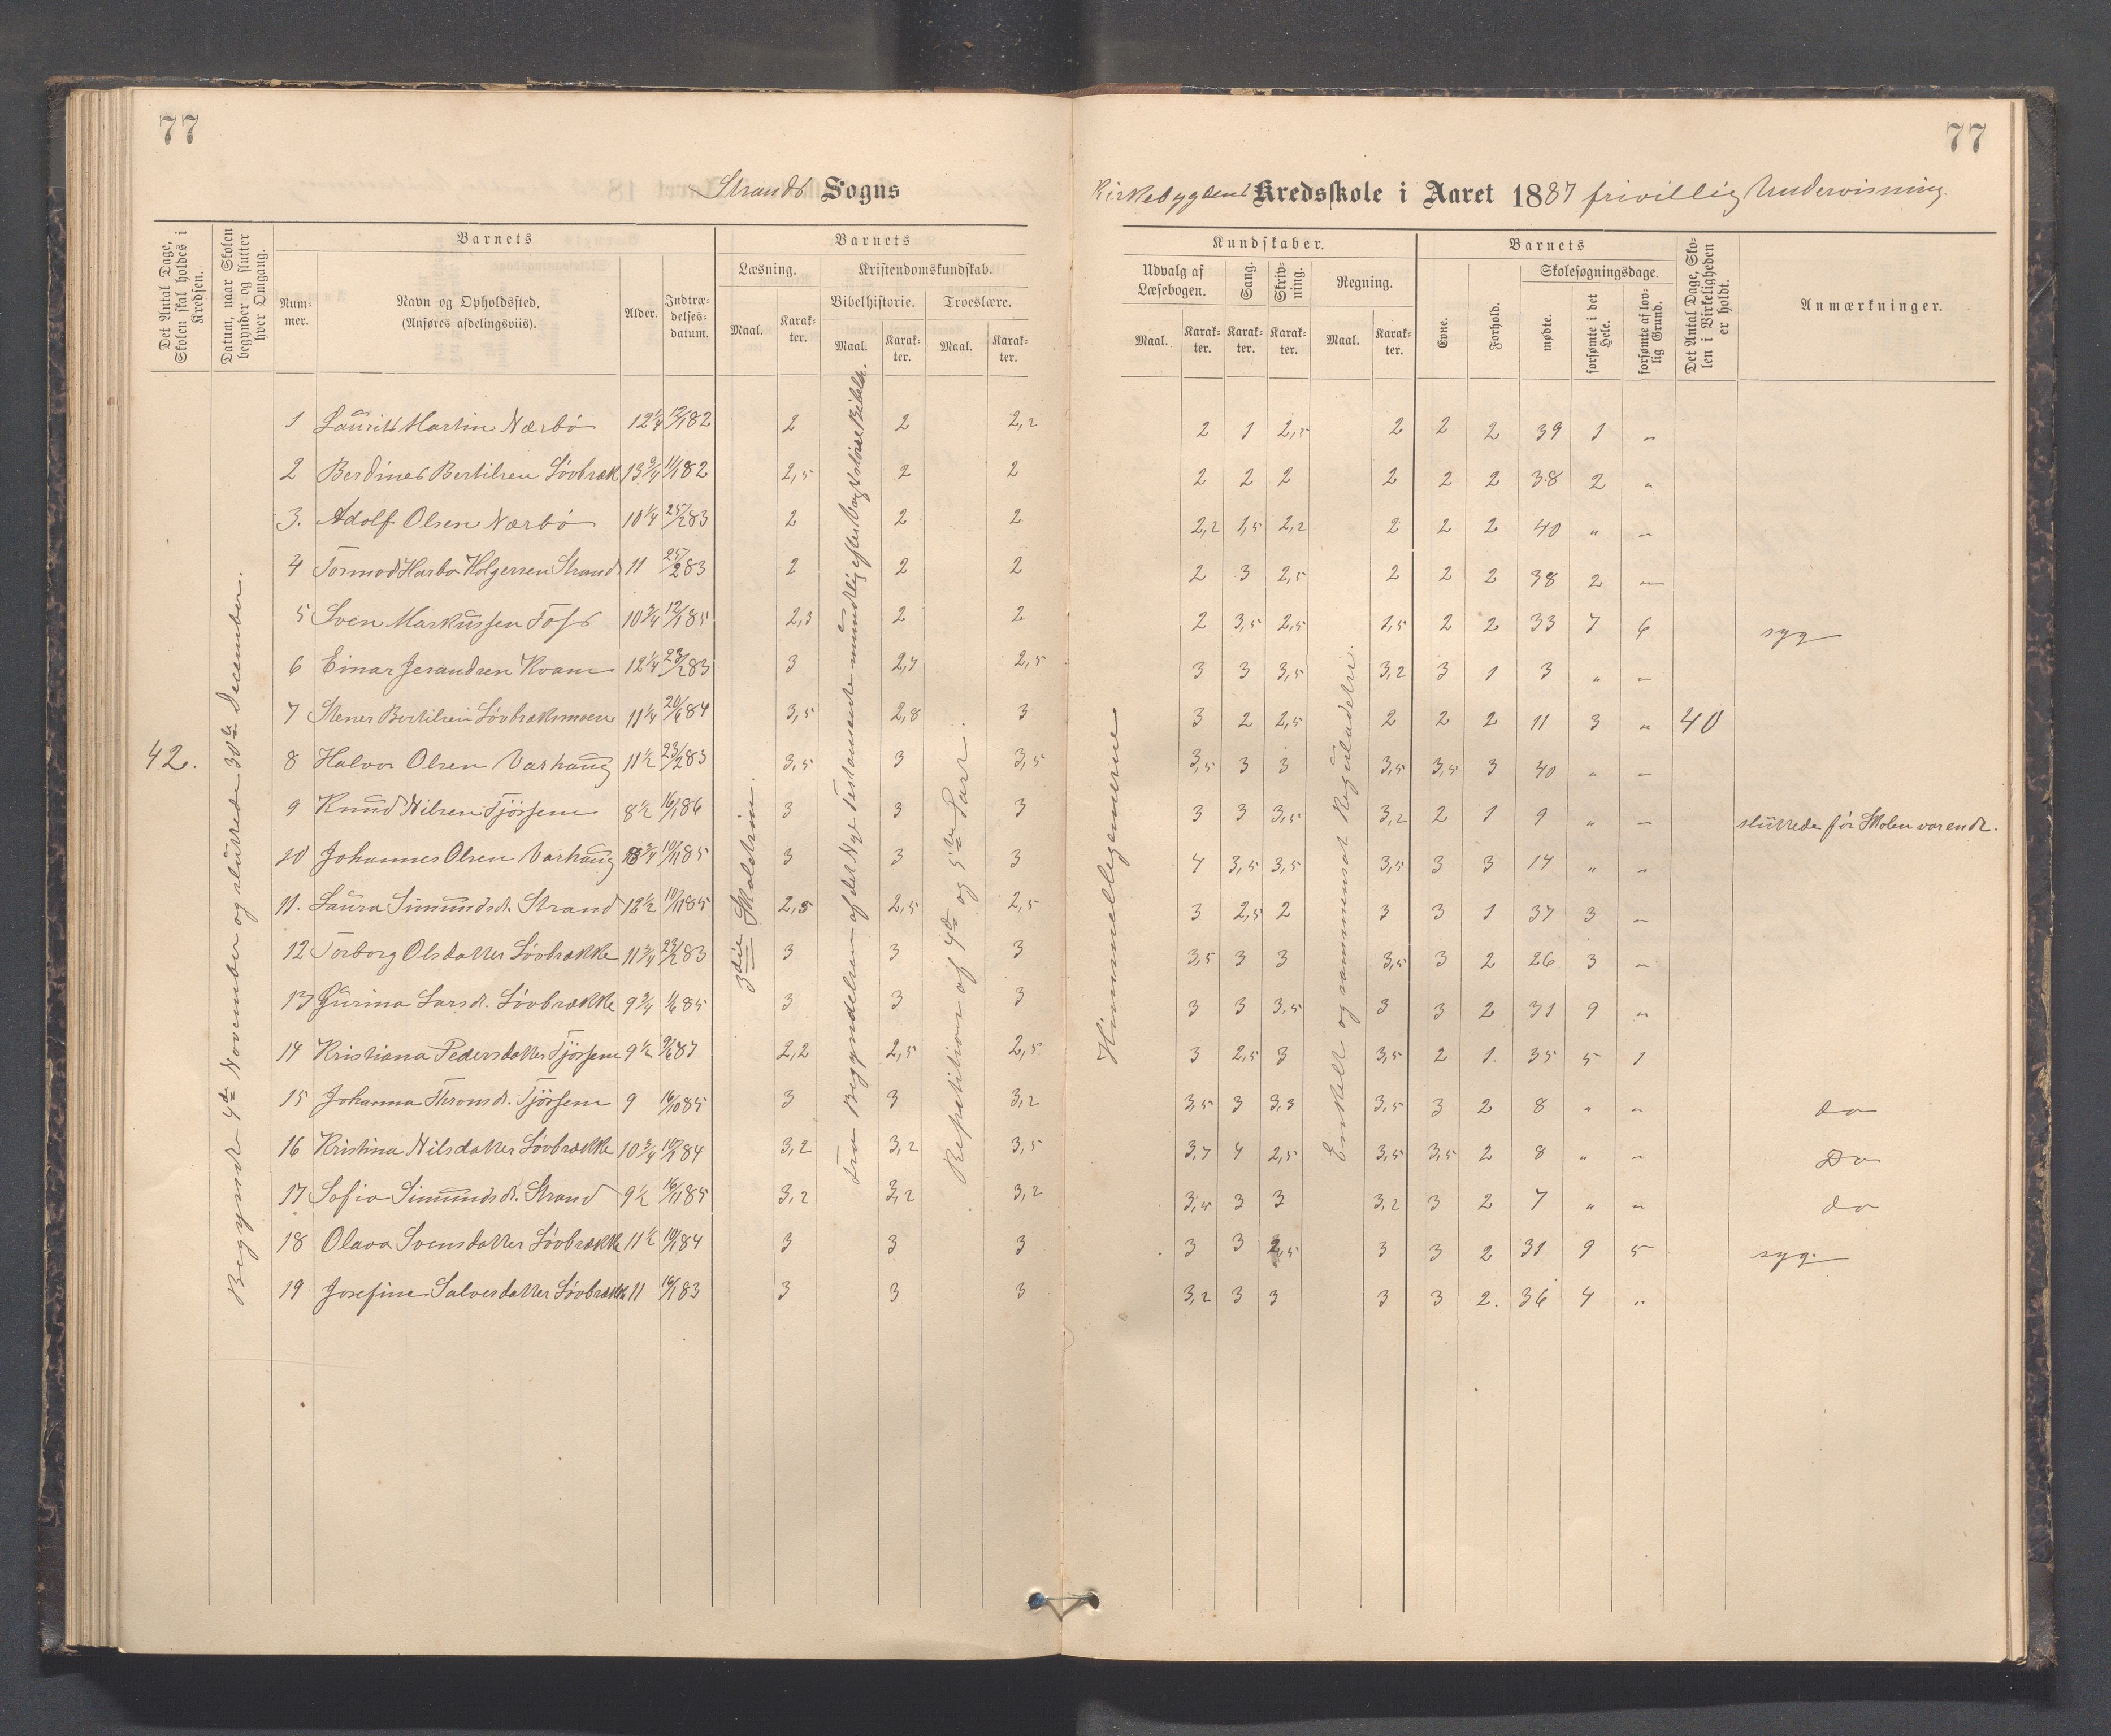 77
77
Strands Sogns
Kirkebygdens Kredsskole i Aaret 1887 frivillig Undervisning.
Det Antal Dage, Skolen skal holdes i Kredsen.
Datum, naar Skolen begynder og slutter hver Omgang.
Barnets
Nummer.
Navn og Opholdssted.
(Anføres afdelingsviis).
Alder.
Indtrædelsesdatum.
Barnets
Læsning.
Kristendomskundskab.
Bibelhistorie.
Troeslære.
Maal.
Karakter.
Maal.
Karakter.
Maal.
Karakter.
Kundskaber.
Udvalg af Læsebogen.
Sang.
Skrivning.
Regning.
Maal.
Karakter.
Karakter.
Karakter.
Maal.
Karakter.
Barnets
Evne.
Forhold.
Skolesøgningsdage.
mødte.
forsømte i det Hele.
forsømte af lovlig Grund.
Det Antal Dage, Skolen i Virkeligheden er holdt.
Anmærkninger.
42.
Begyndte 4de November og sluttede 30te December.
3die Skoletrin.
Fra Begyndelsen af det Nye Testamente mundlig efter Vogts större Bibelh.
Repetition af 4de og 5te Part.
Himmellegemerne
Enkelt og sammensat Reguladetri.
1 Laurits Martin Nærbö 12 1/4 12/1 82 2 2 2,2 2 1 2,5 2 2 2 39 1 "
2 Berdines Bertilsen Lövbræk 13 3/4 11/1 82 2,5 2 2 2 2 2 2 2 2 38 2 "
3. Adolf Olsen Nærbö 10 1/4 25/2 83 2 2 2 2,2 1,5 2,2 2 2 2 40 " "
4 Tormod Harbo Holgersen Strand 11 25/2 83 2 2 2 2 3 2,5 2 2 2 38 2 "
5 Sven Markussen Foss 10 3/4 12/1 85 2,3 2 2 2 3,5 2,5 1,5 2 2 33 7 6 syg
6 Einar Jerandsen Kvam 12 1/4 23/2 83 3 2,7 2,5 3 3 3,5 3,2 3 1 3 " "
7 Stener Bertilsen Lövbræksmoen 11 1/4 20/6 84 3,5 2,8 3 3 2 2,5 2 2 2 11 3 " 40
8 Halvor Olsen Varhaug 11 1/2 23/2 83 3,5 3 3,5 3,5 3 3 3,5 3,5 3 40 " "
9 Knud Nilsen Tjössem 8 1/2 16/1 86 3 3 3 3 3 3,5 3,2 2 1 9 " " sluttede för Skolen var endt.
10 Johannes Olsen Varhaug 8 3/4 10/11 85 3 3 3 4 3,5 3,5 3,5 3 3 14 " "
11. Laura Simundsd. Strand 12 1/2 10/11 85 2,5 2,5 2,5 3 2,5 2 3 3 1 37 3 "
12 Torborg Olsdatter Lövbrække 11 3/4 23/2 83 3 3 3 3,5 3 3 3,5 3 2 26 3 "
13 Gurina Larsd. Lövbrække 9 3/4 1/6 85 3 3 3 3 3 3,5 3 3 2 31 9 "
14 Kristiana Pedersdatter Tjössem 9 1/2 9/6 87 2,2 2,5 2,5 3 2,5 3 3,5 2 1. 35 5 1
15 Johanna Thronsd. Tjössem 9 16/10 85 3 3 3,2 3,5 3 3,3 3,5 3 2 8 " " do
16 Kristina Nilsdatter Lövbrække 10 3/4 10/2 84 3,2 3,2 3,5 3,7 4 2,5 3,5 3,5 2 8 " " Do
17 Sofia Simundsd. Strand 9 1/2 16/11 85 3,2 3,2 3,2 3,5 3 3 3,2 3 2 7 " " do
18 Olava Svensdatter Lövbrække 11 1/2 10/1 84 3 3 3 3 3 2,5 3 3 2 31 9 5 syg.
19 Josefine Salvesdatter Lövbrækk 11 16/1 83 3 3 3 3,2 3 3 3 3 2. 36 4 "